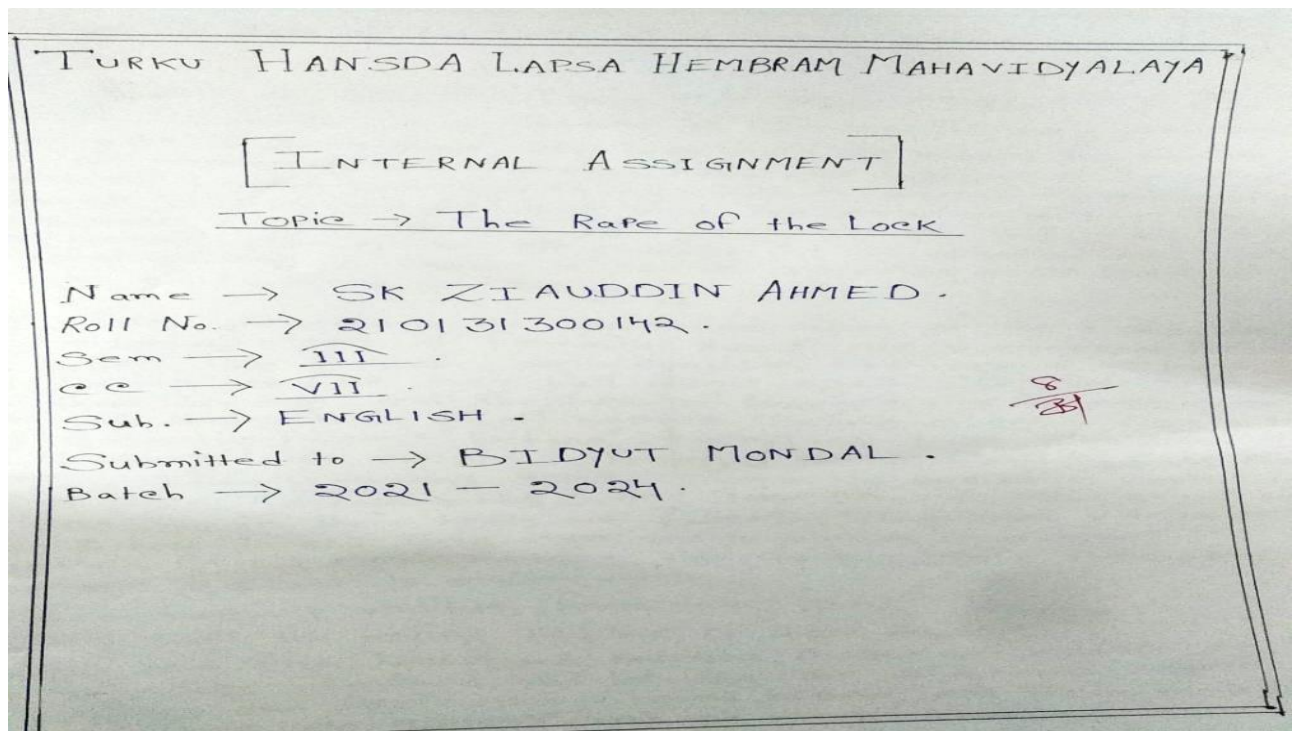 TURKU HANSDA LAPSA HEMBRAM MAHAVIDYALAYA
[INTERNAL ASSIGNMENT]
Topic → The Rape of the Lock
Name → SK ZIAUDDIN AHMED.
Roll No. → 210131300142.
Sem → III.
CC → VII.
Sub. → ENGLISH.
Submitted to → BIDYUT MONDAL.
Batch → 2021 – 2024.
8